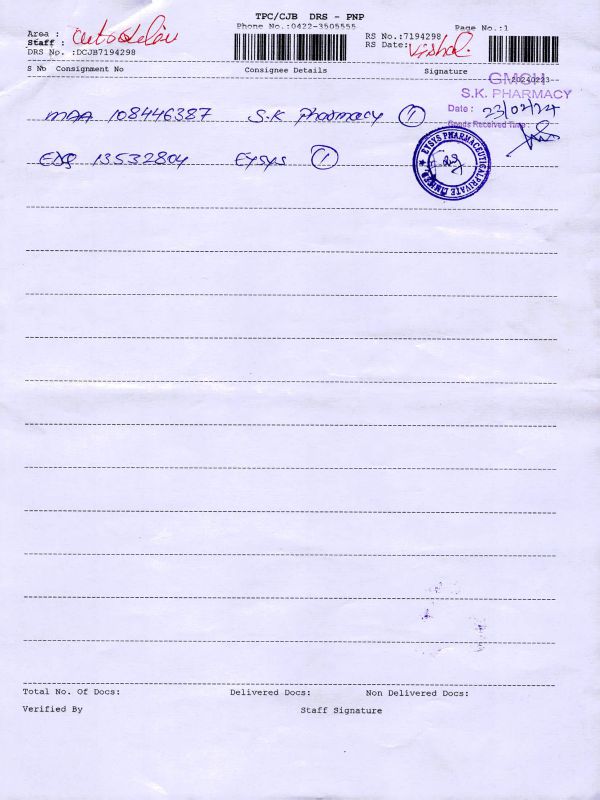 TPC/CJB DRS - PNP
Phone No.:0422-3505555
Page No.:1
Area :
Staff :
DRS No. :DCJB7194298
RS No.:7194298
RS Date:
S No Consignment No Consignee Details Signature
20240223
GMCH
S.K. PHARMACY
Date : 23/02/24
Goods Received Time
MAA 108446387 S.K Pharmacy 1
EDQ 13532804 Eysys 1
EYSYS PHARMACEUTICAL PRIVATE LIMITED
Total No. Of Docs: Delivered Docs: Non Delivered Docs:
Verified By Staff Signature